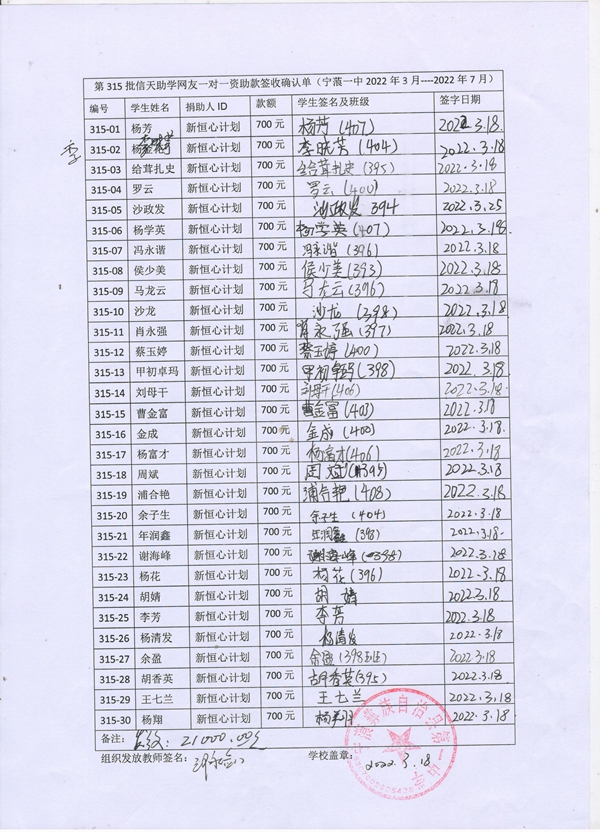 第 315 批信天助学网友一对一资助款签收确认单（宁蒗一中 2022 年 3 月----2022 年 7 月）
编号 学生姓名 捐助人 ID 款额 学生签名及班级 签字日期
315-01 杨芳 新恒心计划 700 元 杨芳(407) 2022.3.18
李 315-02 新恒心计划 700 元 李晓芳(404) 2022.3.18
315-03 给茸扎史 新恒心计划 700 元 给茸扎史(395) 2022.3.18
315-04 罗云 新恒心计划 700 元 罗云(400) 2022.3.18
315-05 沙政发 新恒心计划 700 元 沙政发 394 2022.3.25
315-06 杨学英 新恒心计划 700 元 杨学英(407) 2022.3.18
315-07 冯永谐 新恒心计划 700 元 冯永谐(396) 2022.3.18
315-08 侯少美 新恒心计划 700 元 侯少美(393) 2022.3.18
315-09 马龙云 新恒心计划 700 元 马龙云(396) 2022.3.18
315-10 沙龙 新恒心计划 700 元 沙龙(398) 2022.3.18
315-11 肖永强 新恒心计划 700 元 肖永强(397) 2022.3.18
315-12 蔡玉婷 新恒心计划 700 元 蔡玉婷(400) 2022.3.18
315-13 甲初卓玛 新恒心计划 700 元 甲初卓玛(398) 2022.3.18
315-14 刘母干 新恒心计划 700 元 刘母干(406) 2022.3.18
315-15 曹金富 新恒心计划 700 元 曹金富(403) 2022.3.18
315-16 金成 新恒心计划 700 元 金成(400) 2022.3.18
315-17 杨富才 新恒心计划 700 元 杨富才(406) 2022.3.18
315-18 周斌 新恒心计划 700 元 周斌 2022.3.18
315-19 浦合艳 新恒心计划 700 元 浦合艳(408) 2022.3.18
315-20 余子生 新恒心计划 700 元 余子生(404) 2022.3.18
315-21 年润鑫 新恒心计划 700 元 年润鑫(398) 2022.3.18
315-22 谢海峰 新恒心计划 700 元 谢海峰 2022.3.18
315-23 杨花 新恒心计划 700 元 杨花(396) 2022.3.18
315-24 胡婧 新恒心计划 700 元 胡婧 2022.3.18
315-25 李芳 新恒心计划 700 元 李芳 2022.3.18
315-26 杨清发 新恒心计划 700 元 杨清发 2022.3.18
315-27 余盈 新恒心计划 700 元 余盈 2022.3.18
315-28 胡香英 新恒心计划 700 元 胡香英(395) 2022.3.18
315-29 王七兰 新恒心计划 700 元 王七兰 2022.3.18
315-30 杨翔 新恒心计划 700 元 杨翔 2022.3.18
备注： 21000.00元
组织发放教师签名： 学校盖章： 2022.3.18
族自治县第一中学